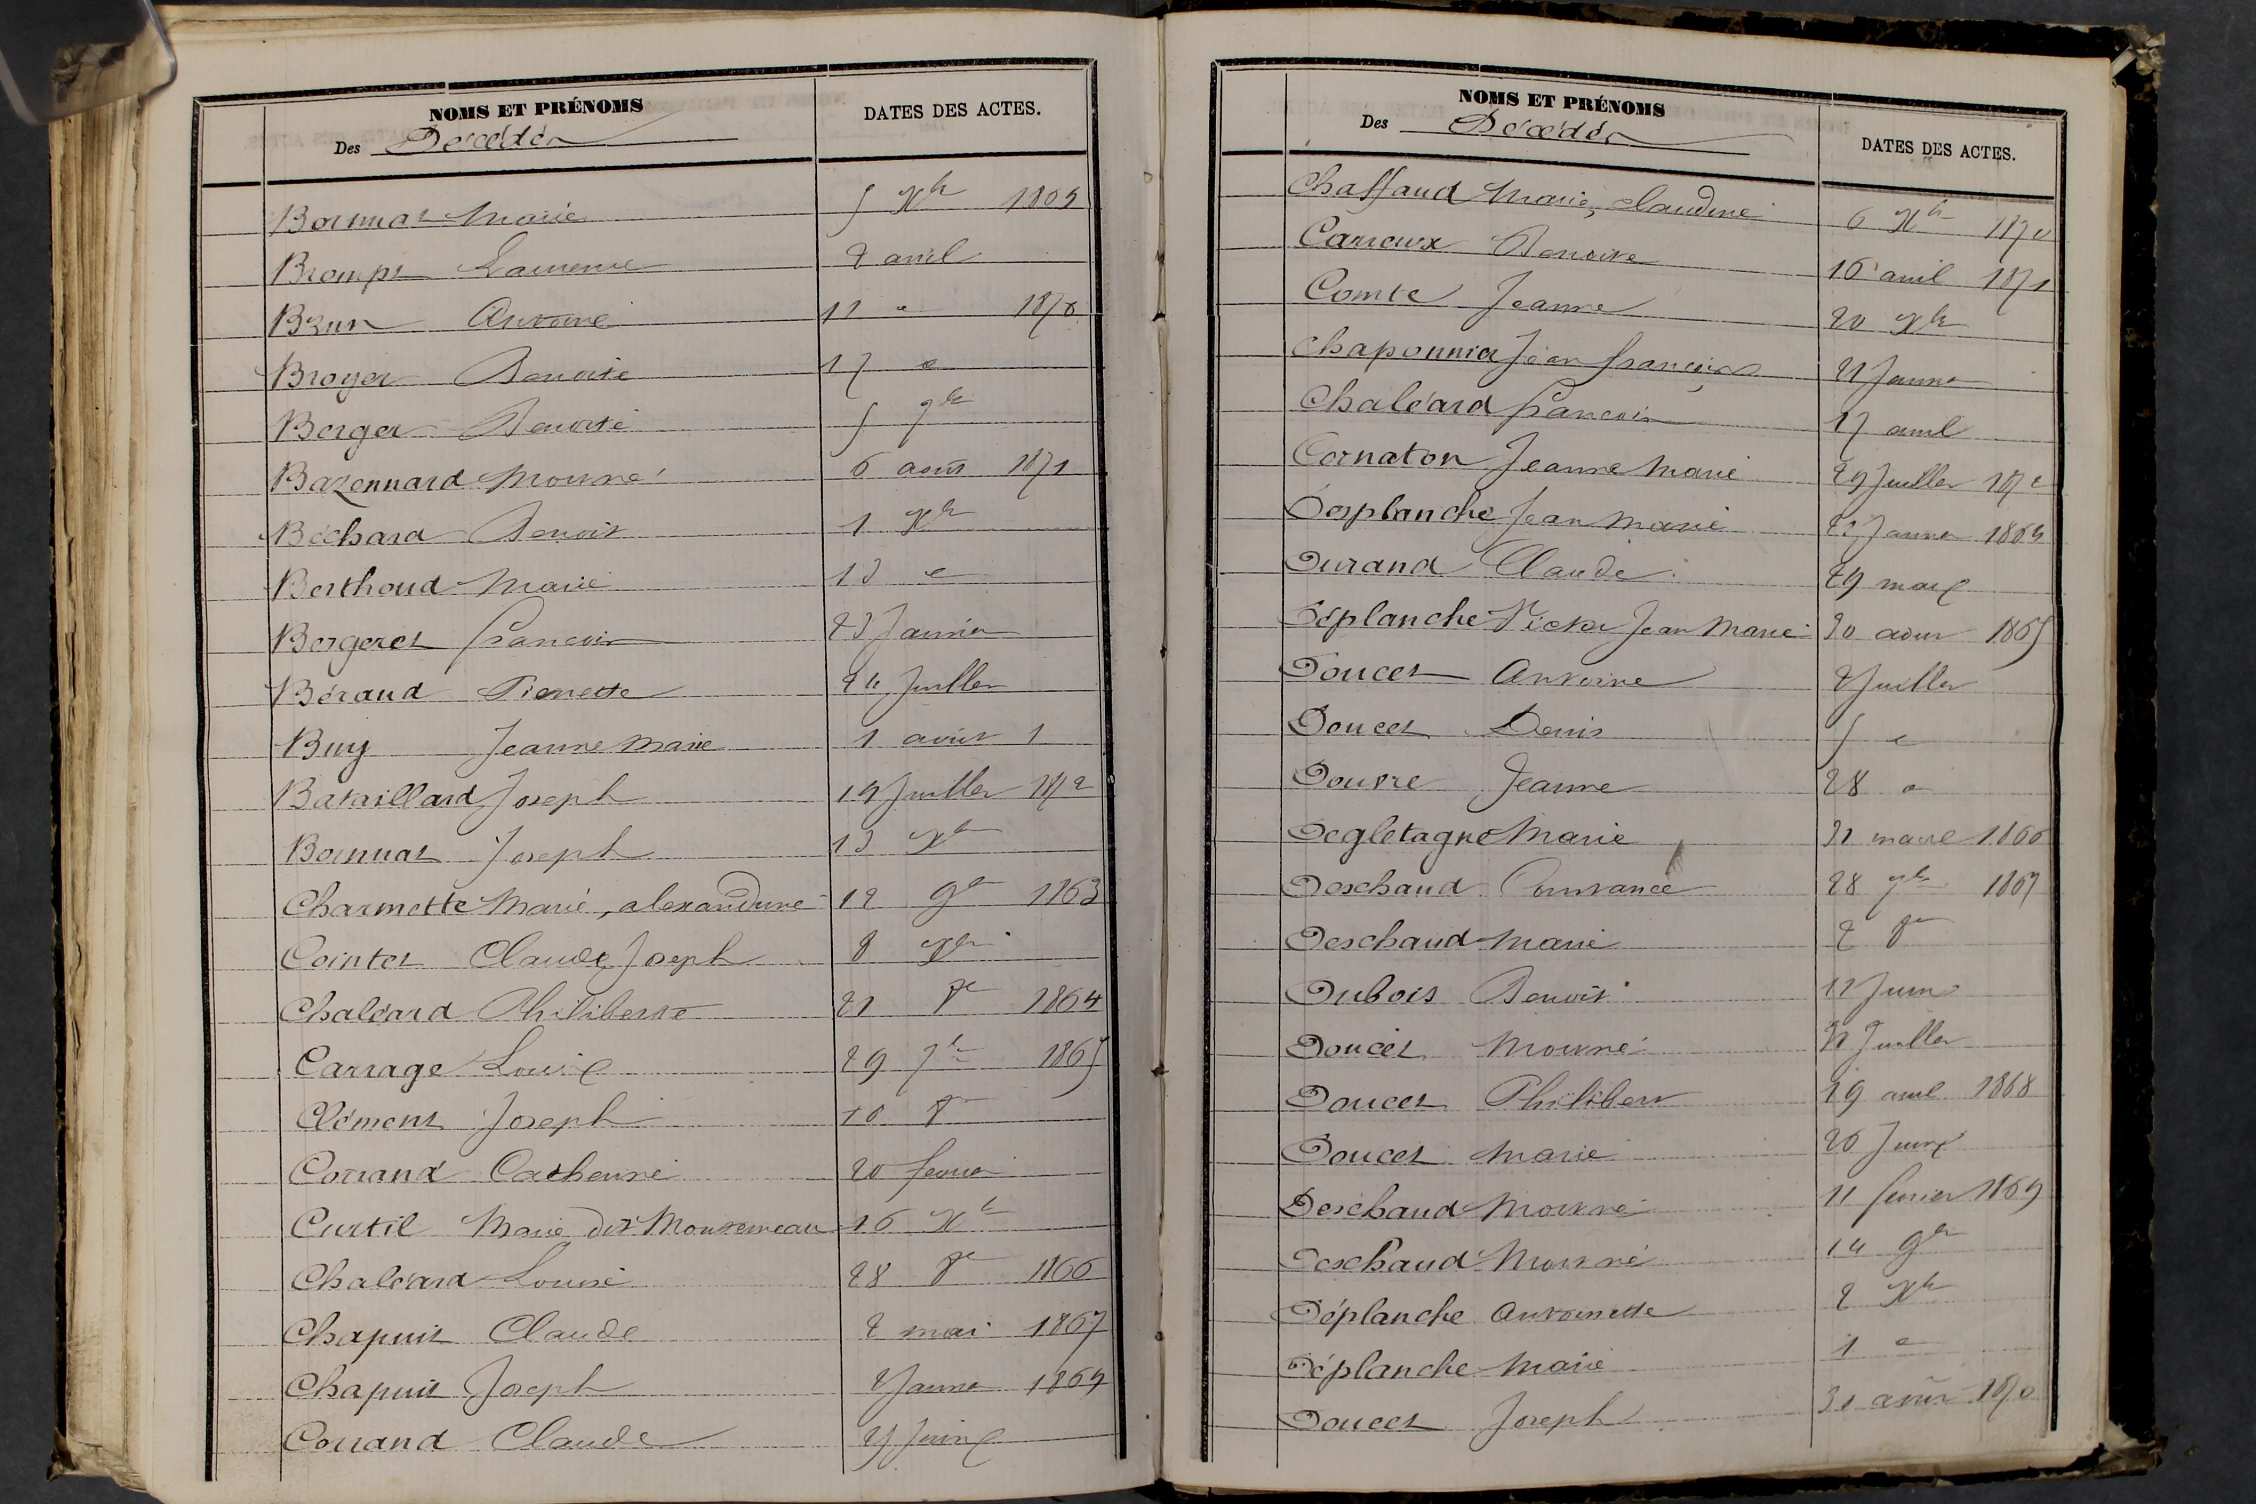 NOMS ET PRÉNOMS
Des Décédés
DATES DES ACTES.
Bornuat Marie 5 Xbre 1869
Bromps Laurence 2 avril
Brun Antoine 11 " 1870
Broyer Benoite 17 "
Berger Benoite 5 7bre
Bazennard Mort né 6 août 1871
Béchard Benoit 1 Xbre
Berthoud Marie 13 "
Bergeret françois 23 Janvier
Béraud Pierrette 24 Juillet
Buy Jeanne Marie 1 août 1
Bataillard Joseph 19 Juillet 1872
Bornuat Joseph 13 Xbre
Charmette Marie, alexandrine 12 9bre 1863
Cointet Claude Joseph 8 Xbre
Chaléard Philiberte 21 8bre 1864
Carrage Louis 29 7bre 1865
Clément Joseph 10 8bre
Corrand Catherine 20 fevrier
Curtil Marie dit Monterneau 16 Xbre
Chaléard Louise 28 8bre 1866
Chapuis Claude 2 mai 1867
Chapuis Joseph 2 Janvier 1869
Corrand Claude 27 Juin
NOMS ET PRÉNOMS
Des Décédés
DATES DES ACTES.
Chaffaud Marie, Claudine 6 Xbre 1870
Carreux Benoite 16 avril 1871
Comte Jeanne 20 Xbre
Chaponnier Jean françois 21 Janvier
Chaléard françois 17 avril
Cornaton Jeanne Marie 29 Juillet 1872
Desplanche Jean Marie Janvier 1863
Durand Claude 29 mars
Déplanche Victor Jean Marie 30 août 1865
Doucet Antoine 2 Juillet
Doucet Denis 5 "
Douvre Jeanne 28 "
Degletagne Marie 31 mars 1866
Deschaud Constance 28 7bre 1867
Deschaud Marie 2 8bre
Dubois Benoit 12 Juin
Doucet Mort né Juillet
Doucet Philibert 19 avril 1868
Doucet Marie 26 Juin
Deschaud Mort né 11 fevrier 1869
Deschaud Mort né 14 9bre
Déplanche Antoinette 2 Xbre
Déplanche Marie 1 "
Doucet Joseph 31 août 1870